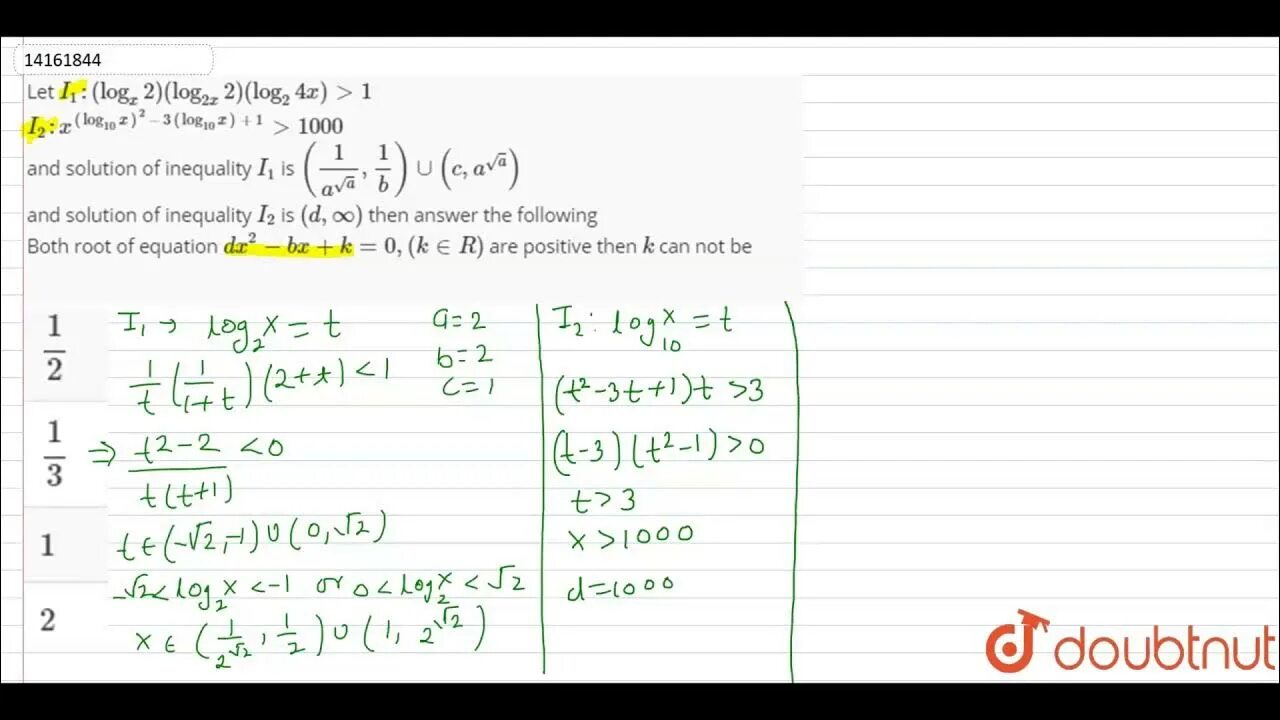 14161844
Let I₁ : (logₓ 2)(log₂ₓ 2)(log₂ 4x) > 1
I₂ : x^((log₁₀ x)² − 3(log₁₀ x) + 1) > 1000
and solution of inequality I₁ is (1/a^√a, 1/b) ∪ (c, a^√a)
and solution of inequality I₂ is (d, ∞) then answer the following
Both root of equation dx² − bx + k = 0, (k ∈ R) are positive then k can not be
1/2
1/3
1
2
I₁ → log₂ x = t
1/t (1/(1+t)) (2+t) < 1
⇒ (t² − 2)/(t(t+1)) < 0
t ∈ (−√2, −1) ∪ (0, √2)
−√2 < log₂ x < −1 or 0 < log₂ x < √2
x ∈ (1/2^√2, 1/2) ∪ (1, 2^√2)
a = 2
b = 2
c = 1
I₂ : log₁₀ x = t
(t² − 3t + 1) t > 3
(t − 3)(t² − 1) > 0
t > 3
x > 1000
d = 1000
doubtnut